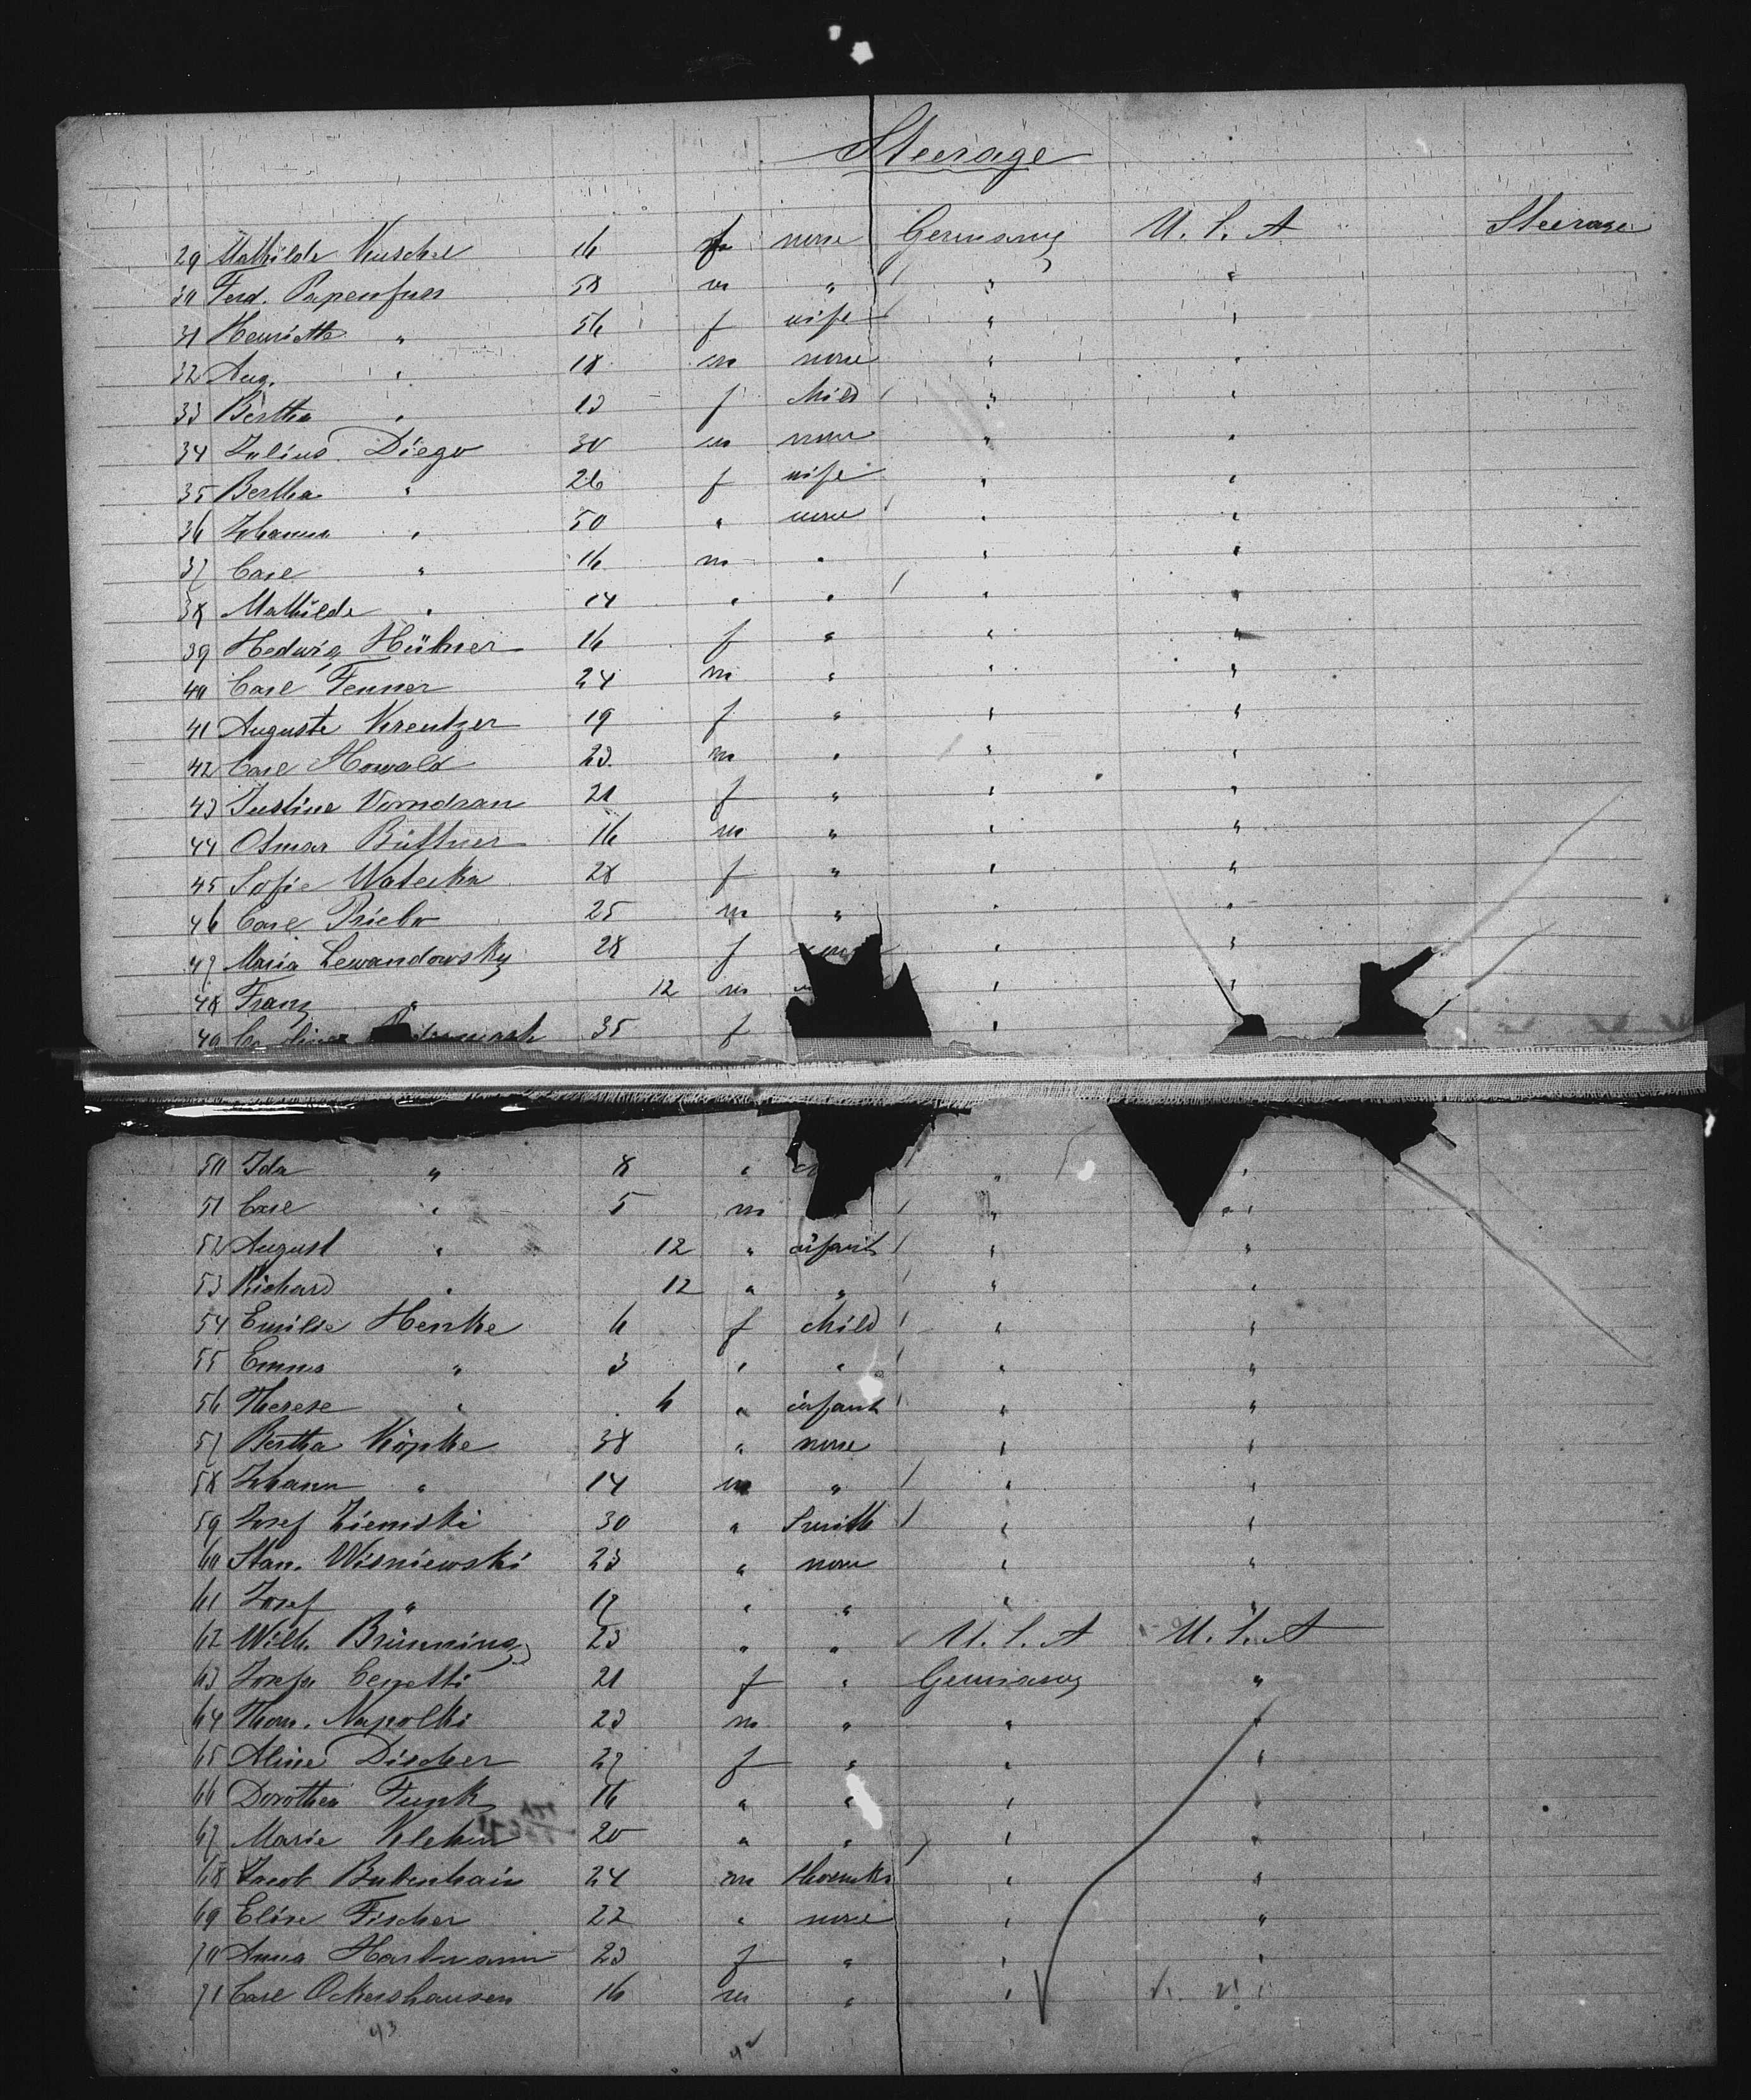 Steerage
29 Mathilde Kuschel 16 f none Germany U. S. A Steerage
30 Ferd. Papenfues 58 m " " "
31 Henriette " 56 f wife " "
32 Aug. " 18 m none " "
33 Bertha " 13 f child " "
34 Julius Diego 30 m none " "
35 Bertha " 26 f wife " "
36 Johanna " 50 " none " "
37 Carl " 16 m " " "
38 Mathilde " 14 " " " "
39 Hedwig Hübner 16 f " " "
40 Carl Fenner 24 m " " "
41 Auguste Kreutzer 19 f " " "
42 Carl Howald 23 m " " "
43 Justine Vorndran 21 f " " "
44 Osmar Büttner 16 m " " "
45 Sofie Watecka 28 f " " "
46 Carl Priebe 25 m " " "
47 Maria Lewandowsky 28 f " "
48 Franz " 12 m " "
49 35 f "
50 Ida " 8 " " "
51 Carl " 5 m " "
52 August " 12 " infant " "
53 Richard " 12 " " " "
54 Emilie Henke 6 f child " "
55 Emma " 3 " " " "
56 Therese " 6 " infant " "
57 Bertha Köpke 38 " none " "
58 Johann " 14 m " " "
59 Josef Ziemski 30 " Smith " "
60 Stan. Wisniewski 23 " none " "
61 Josef " 17 " " " "
62 Wilh. Brünning 23 " " U. S. A U. S. A
63 Josefa 21 f " Germany "
64 Thom. Napolski 23 m " " "
65 Aline Discher 27 f " " "
66 Dorothea Funk 16 " " " "
67 Marie 20 " " " "
68 Jacob Bubenhain 24 m " "
69 Elise Fischer 22 " none " "
70 Anna Hartmann 23 f " " "
71 Carl Ockershausen 16 m " " "
43